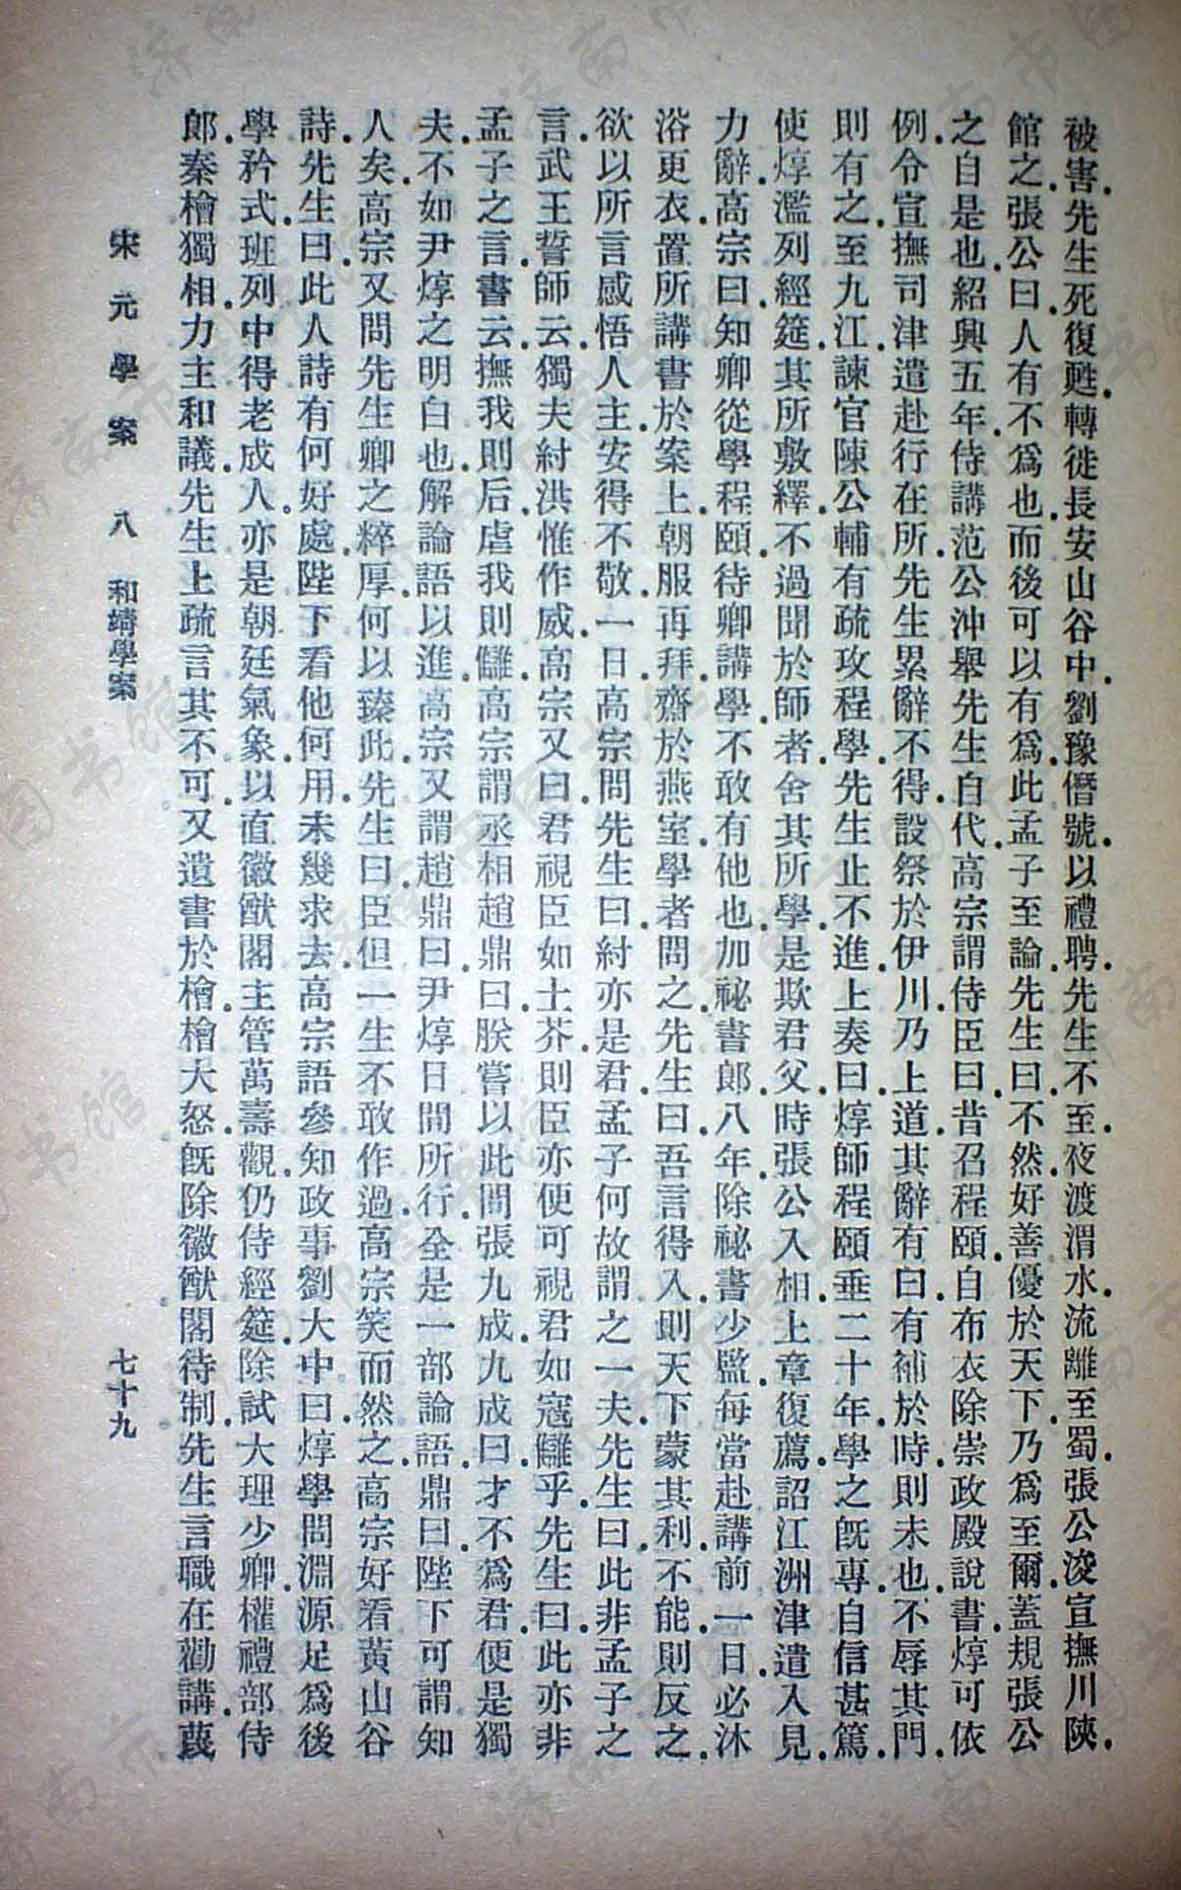 被害先生死復甦轉徙長安山谷中劉豫僭號以禮聘先生不至夜渡渭水流離至蜀張公浚宣撫川陝
館之張公曰人有不爲也而後可以有爲此孟子至論先生曰不然好善優於天下乃爲至爾蓋規張公
之自是也紹興五年侍講范公沖舉先生自代高宗謂侍臣曰昔召程頤自布衣除崇政殿說書焞可依
例令宣撫司津遣赴行在所先生累辭不得設祭於伊川乃上道其辭有曰有補於時則未也不辱其門
則有之至九江諫官陳公輔有疏攻程學先生止不進上奏曰焞師程頤垂二十年學之旣專自信甚篤
使焞濫列經筵其所敷繹不過聞於師者舍其所學是欺君父時張公入相上章復薦詔江洲津遣入見
力辭高宗曰知卿從學程頤待卿講學不敢有他也加祕書郎八年除祕書少監每當赴講前一日必沐
浴更衣置所講書於案上朝服再拜齋於燕室學者問之先生曰吾言得入則天下蒙其利不能則反之
欲以所言感悟人主安得不敬一日高宗問先生曰紂亦是君孟子何故謂之一夫先生曰此非孟子之
言武王誓師云獨夫紂洪惟作威高宗又曰君視臣如土芥則臣亦便可視君如寇讎乎先生曰此亦非
孟子之言書云撫我則后虐我則讎高宗謂丞相趙鼎曰朕嘗以此問張九成九成曰才不爲君便是獨
夫不如尹焞之明白也解論語以進高宗又謂趙鼎曰尹焞日間所行全是一部論語鼎曰陛下可謂知
人矣高宗又問先生卿之粹厚何以臻此先生曰臣但一生不敢作過高宗笑而然之高宗好看黃山谷
詩先生曰此人詩有何好處陛下看他何用未幾求去高宗語參知政事劉大中曰焞學問淵源足爲後
學矜式班列中得老成人亦是朝廷氣象以直徽猷閣主管萬壽觀仍侍經筵除試大理少卿權禮部侍
郎秦檜獨相力主和議先生上疏言其不可又遺書於檜檜大怒旣除徽猷閣待制先生言職在勸講蔑
宋元學案 八 和靖學案 七十九